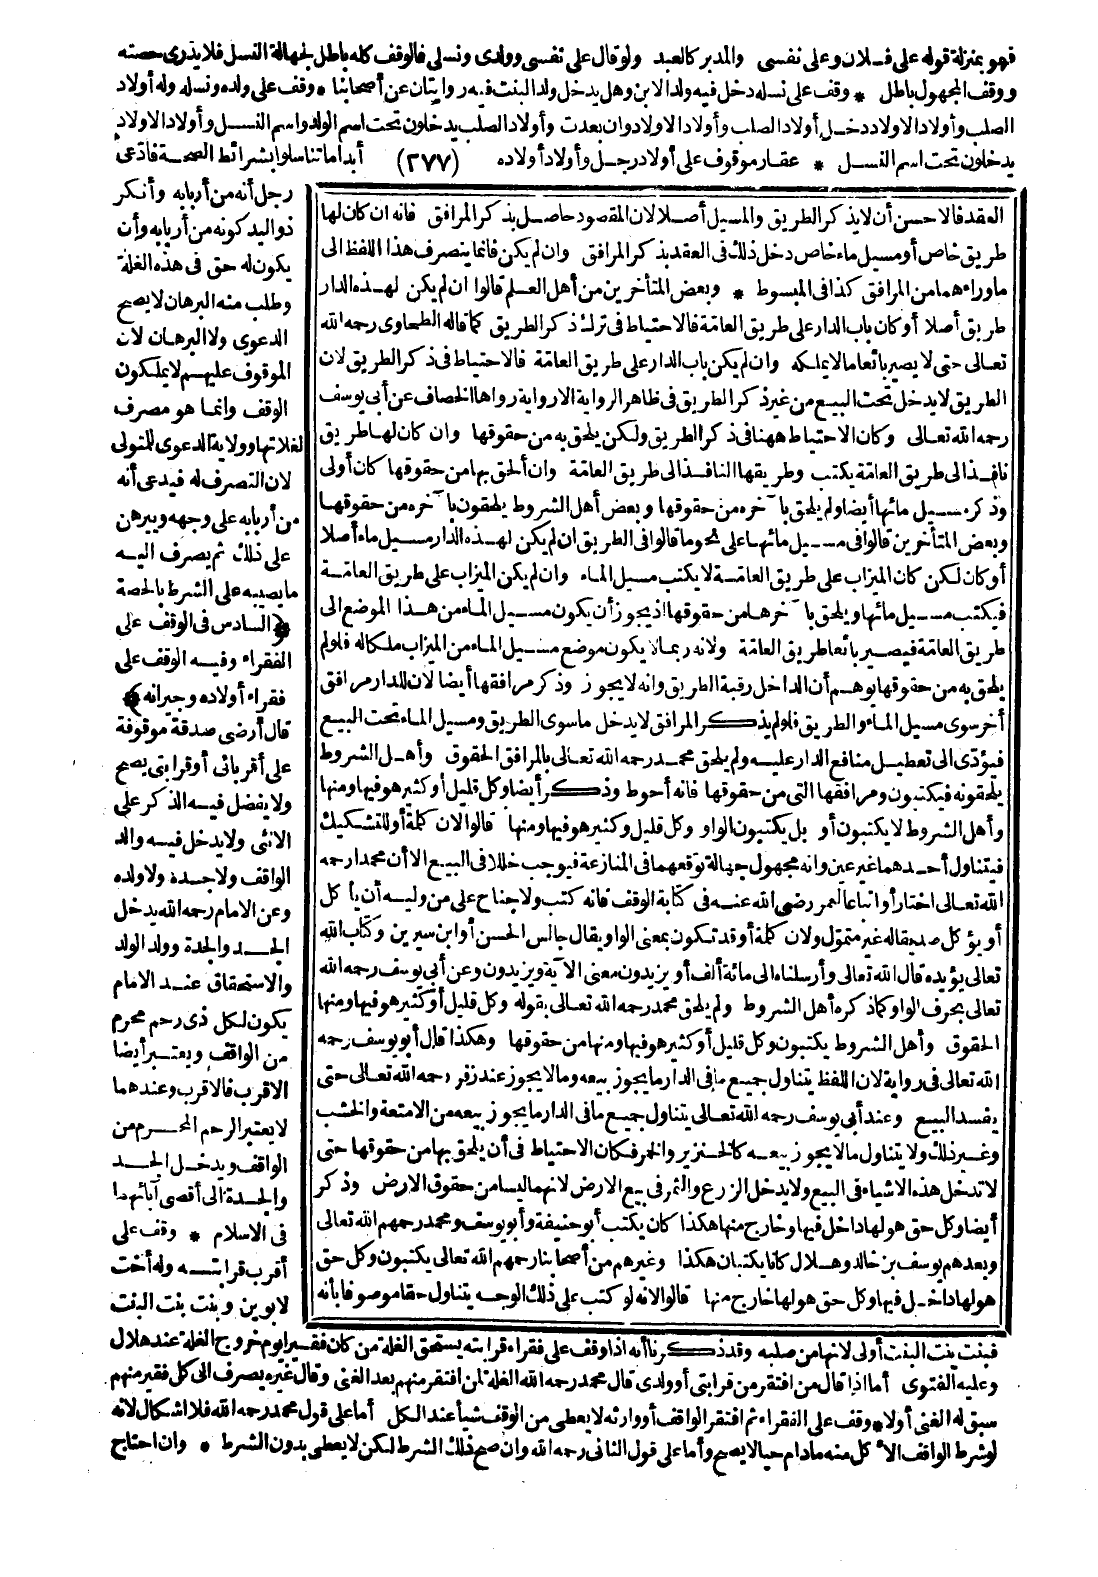 فهو بمنزلة قوله على فلان وعلى نفسى والمدبر كالعبد ولو قال على نفسى وولدى ونسلى فالوقف كله باطل لجهالة النسل فلا يدرى حصته
ووقف المجهول باطل * وقف على نسله دخل فيه ولد الابن وهل يدخل ولد البنت فيه روايتان عن أصحابنا * وقف على ولده ونسله وله أولاد
الصلب وأولاد الاولاد دخل أولاد الصلب وأولاد الاولاد وان بعدت وأولاد الصلب يدخلون تحت اسم الولد واسم النسل وأولاد الاولاد
يدخلون تحت اسم النسل * عقار موقوف على أولاد رجل وأولاد أولاده (٢٧٧) أبدا ما تناسلوا بشرائط الصحة فادّعى
رجل أنه من أربابه وأنكر
ذو اليد كونه من أربابه وأن
يكون له حق فى هذه الغلة
وطلب منه البرهان لا يصح
الدعوى ولا البرهان لان
الموقوف عليهم لا يملكون
الوقف وانما هو مصرف
لغلاتها وولاية الدعوى للمتولى
لان التصرف له فيدعى أنه
من أربابه على وجهه ويبرهن
على ذلك ثم يصرف اليه
ما يصيبه على الشرط بالحصة
﴿السادس فى الوقف على
الفقراء وفيه الوقف على
فقراء أولاده وجيرانه﴾
قال أرضى صدقة موقوفة
على أقربائى أو قرابتى يصح
ولا يفضل فيه الذكر على
الانثى ولا يدخل فيه والد
الواقف ولا جده ولا ولده
وعن الامام رحمه الله يدخل
الجد والجدة وولد الولد
والاستحقاق عند الامام
يكون لكل ذى رحم محرم
من الواقف ويعتبر أيضا
الاقرب فالاقرب وعندهما
لا يعتبر الرحم المحرم من
الواقف ويدخل الجد
والجدة الى أقصى آبائهما
فى الاسلام * وقف على
أقرب قرابته وله أخت
لابوين وبنت بنت البنت
العقد فالاحسن أن لا يذكر الطريق والمسيل أصلا لان المقصود حاصل بذكر المرافق فانه ان كان لها
طريق خاص أو مسيل ماء خاص دخل ذلك فى العقد بذكر المرافق وان لم يكن فانما ينصرف هذا اللفظ الى
ما وراءهما من المرافق كذا فى المبسوط * وبعض المتأخرين من أهل العلم قالوا ان لم يكن لهذه الدار
طريق أصلا أو كان باب الدار على طريق العامّة فالاحتياط فى ترك ذكر الطريق كما قاله الطحاوى رحمه الله
تعالى حتى لا يصير بائعا ما لا يملكه وان لم يكن باب الدار على طريق العامّة فالاحتياط فى ذكر الطريق لان
الطريق لا يدخل تحت البيع من غير ذكر الطريق فى ظاهر الرواية الا رواية رواها الخصاف عن أبى يوسف
رحمه الله تعالى وكان الاحتياط ههنا فى ذكر الطريق ولكن يلحق به من حقوقها وان كان لها طريق
نافذ الى طريق العامّة يكتب وطريقها النافذ الى طريق العامّة وان ألحق بها من حقوقها كان أولى
وذكر مسيل مائها أيضا ولم يلحق بآخره من حقوقها وبعض أهل الشروط يلحقون بآخره من حقوقها
وبعض المتأخرين قالوا فى مسيل مائها على نحو ما قالوا فى الطريق ان لم يكن لهذه الدار مسيل ماء أصلا
أو كان لكن كان الميزاب على طريق العامّة لا يكتب مسيل الماء وان لم يكن الميزاب على طريق العامّة
فيكتب مسيل مائها ويلحق بآخرها من حقوقها اذ يجوز أن يكون مسيل الماء من هذا الموضع الى
طريق العامّة فيصير بائعا طريق العامّة ولانه ربما لا يكون موضع مسيل الماء من الميزاب ملكا له فلو لم
يلحق به من حقوقها يوهم أن الداخل رقبة الطريق وانه لا يجوز وذكر مرافقها أيضا لان للدار مرافق
أخر سوى مسيل الماء والطريق فلو لم يذكر المرافق لا يدخل ما سوى الطريق ومسيل الماء تحت البيع
فيؤدى الى تعطيل منافع الدار عليه ولم يلحق محمد رحمه الله تعالى بالمرافق الحقوق وأهل الشروط
يلحقونه فيكتبون ومرافقها التى من حقوقها فانه أحوط وذكر أيضا وكل قليل أو كثير هو فيها ومنها
وأهل الشروط لا يكتبون أو بل يكتبون الواو وكل قليل وكثير هو فيها ومنها قالوا لان كلمة أو للتشكيك
فيتناول أحدهما غير عين وانه مجهول جهالة توقعهما فى المنازعة فيوجب خللا فى البيع الا أن محمدا رحمه
الله تعالى اختار أو اتباعا لعمر رضى الله عنه فى كتابة الوقف فانه كتب ولا جناح على من وليه أن يأكل
أو يؤكل صديقا له غير متموّل ولان كلمة أو قد تكون بمعنى الواو يقال جالس الحسن أو ابن سيرين وكتاب الله
تعالى يؤيده قال الله تعالى وأرسلناه الى مائة ألف أو يزيدون معنى الآية ويزيدون وعن أبى يوسف رحمه الله
تعالى بحرف الواو كما ذكره أهل الشروط ولم يلحق محمد رحمه الله تعالى بقوله وكل قليل أو كثير هو فيها ومنها
الحقوق وأهل الشروط يكتبون وكل قليل أو كثير هو فيها ومنها من حقوقها وهكذا قال أبو يوسف رحمه
الله تعالى فى رواية لان اللفظ يتناول جميع ما فى الدار ما يجوز بيعه وما لا يجوز عند زفر رحمه الله تعالى حتى
يفسد البيع وعند أبى يوسف رحمه الله تعالى يتناول جميع ما فى الدار ما يجوز بيعه من الامتعة والخشب
وغير ذلك ولا يتناول ما لا يجوز بيعه كالخنزير والخمر فكان الاحتياط فى أن يلحق بها من حقوقها حتى
لا تدخل هذه الاشياء فى البيع ولا يدخل الزرع والثمر فى بيع الارض لانهما ليسا من حقوق الارض وذكر
أيضا وكل حق هو لها داخل فيها وخارج منها هكذا كان يكتب أبو حنيفة وأبو يوسف ومحمد رحمهم الله تعالى
وبعدهم يوسف بن خالد وهلال كانا يكتبان هكذا وغيرهم من أصحابنا رحمهم الله تعالى يكتبون وكل حق
هو لها داخل فيها وكل حق هو لها خارج منها قالوا لانه لو كتب على ذلك الوجه يتناول حقا موصوفا بأنه
فبنت بنت البنت أولى لانها من صلبه وقد ذكرنا أنه اذا وقف على فقراء قرابته يستحق الغلة من كان فقيرا يوم خروج الغلة عند هلال
وعليه الفتوى أما اذا قال من افتقر من قرابتى أو ولدى قال محمد رحمه الله الغلة لمن افتقر منهم بعد الغنى وقال غيره يصرف الى كل فقير منهم
سبق له الغنى أولا * وقف على الفقراء ثم افتقر الواقف أو وارثه لا يعطى من الوقف شيأ عند الكل أما على قول محمد رحمه الله فلا اشكال لانه
لو شرط الواقف الأكل منه مادام حيا لا يصح وأما على قول الثانى رحمه الله وان صح ذلك الشرط لكن لا يعطى بدون الشرط * وان احتاج